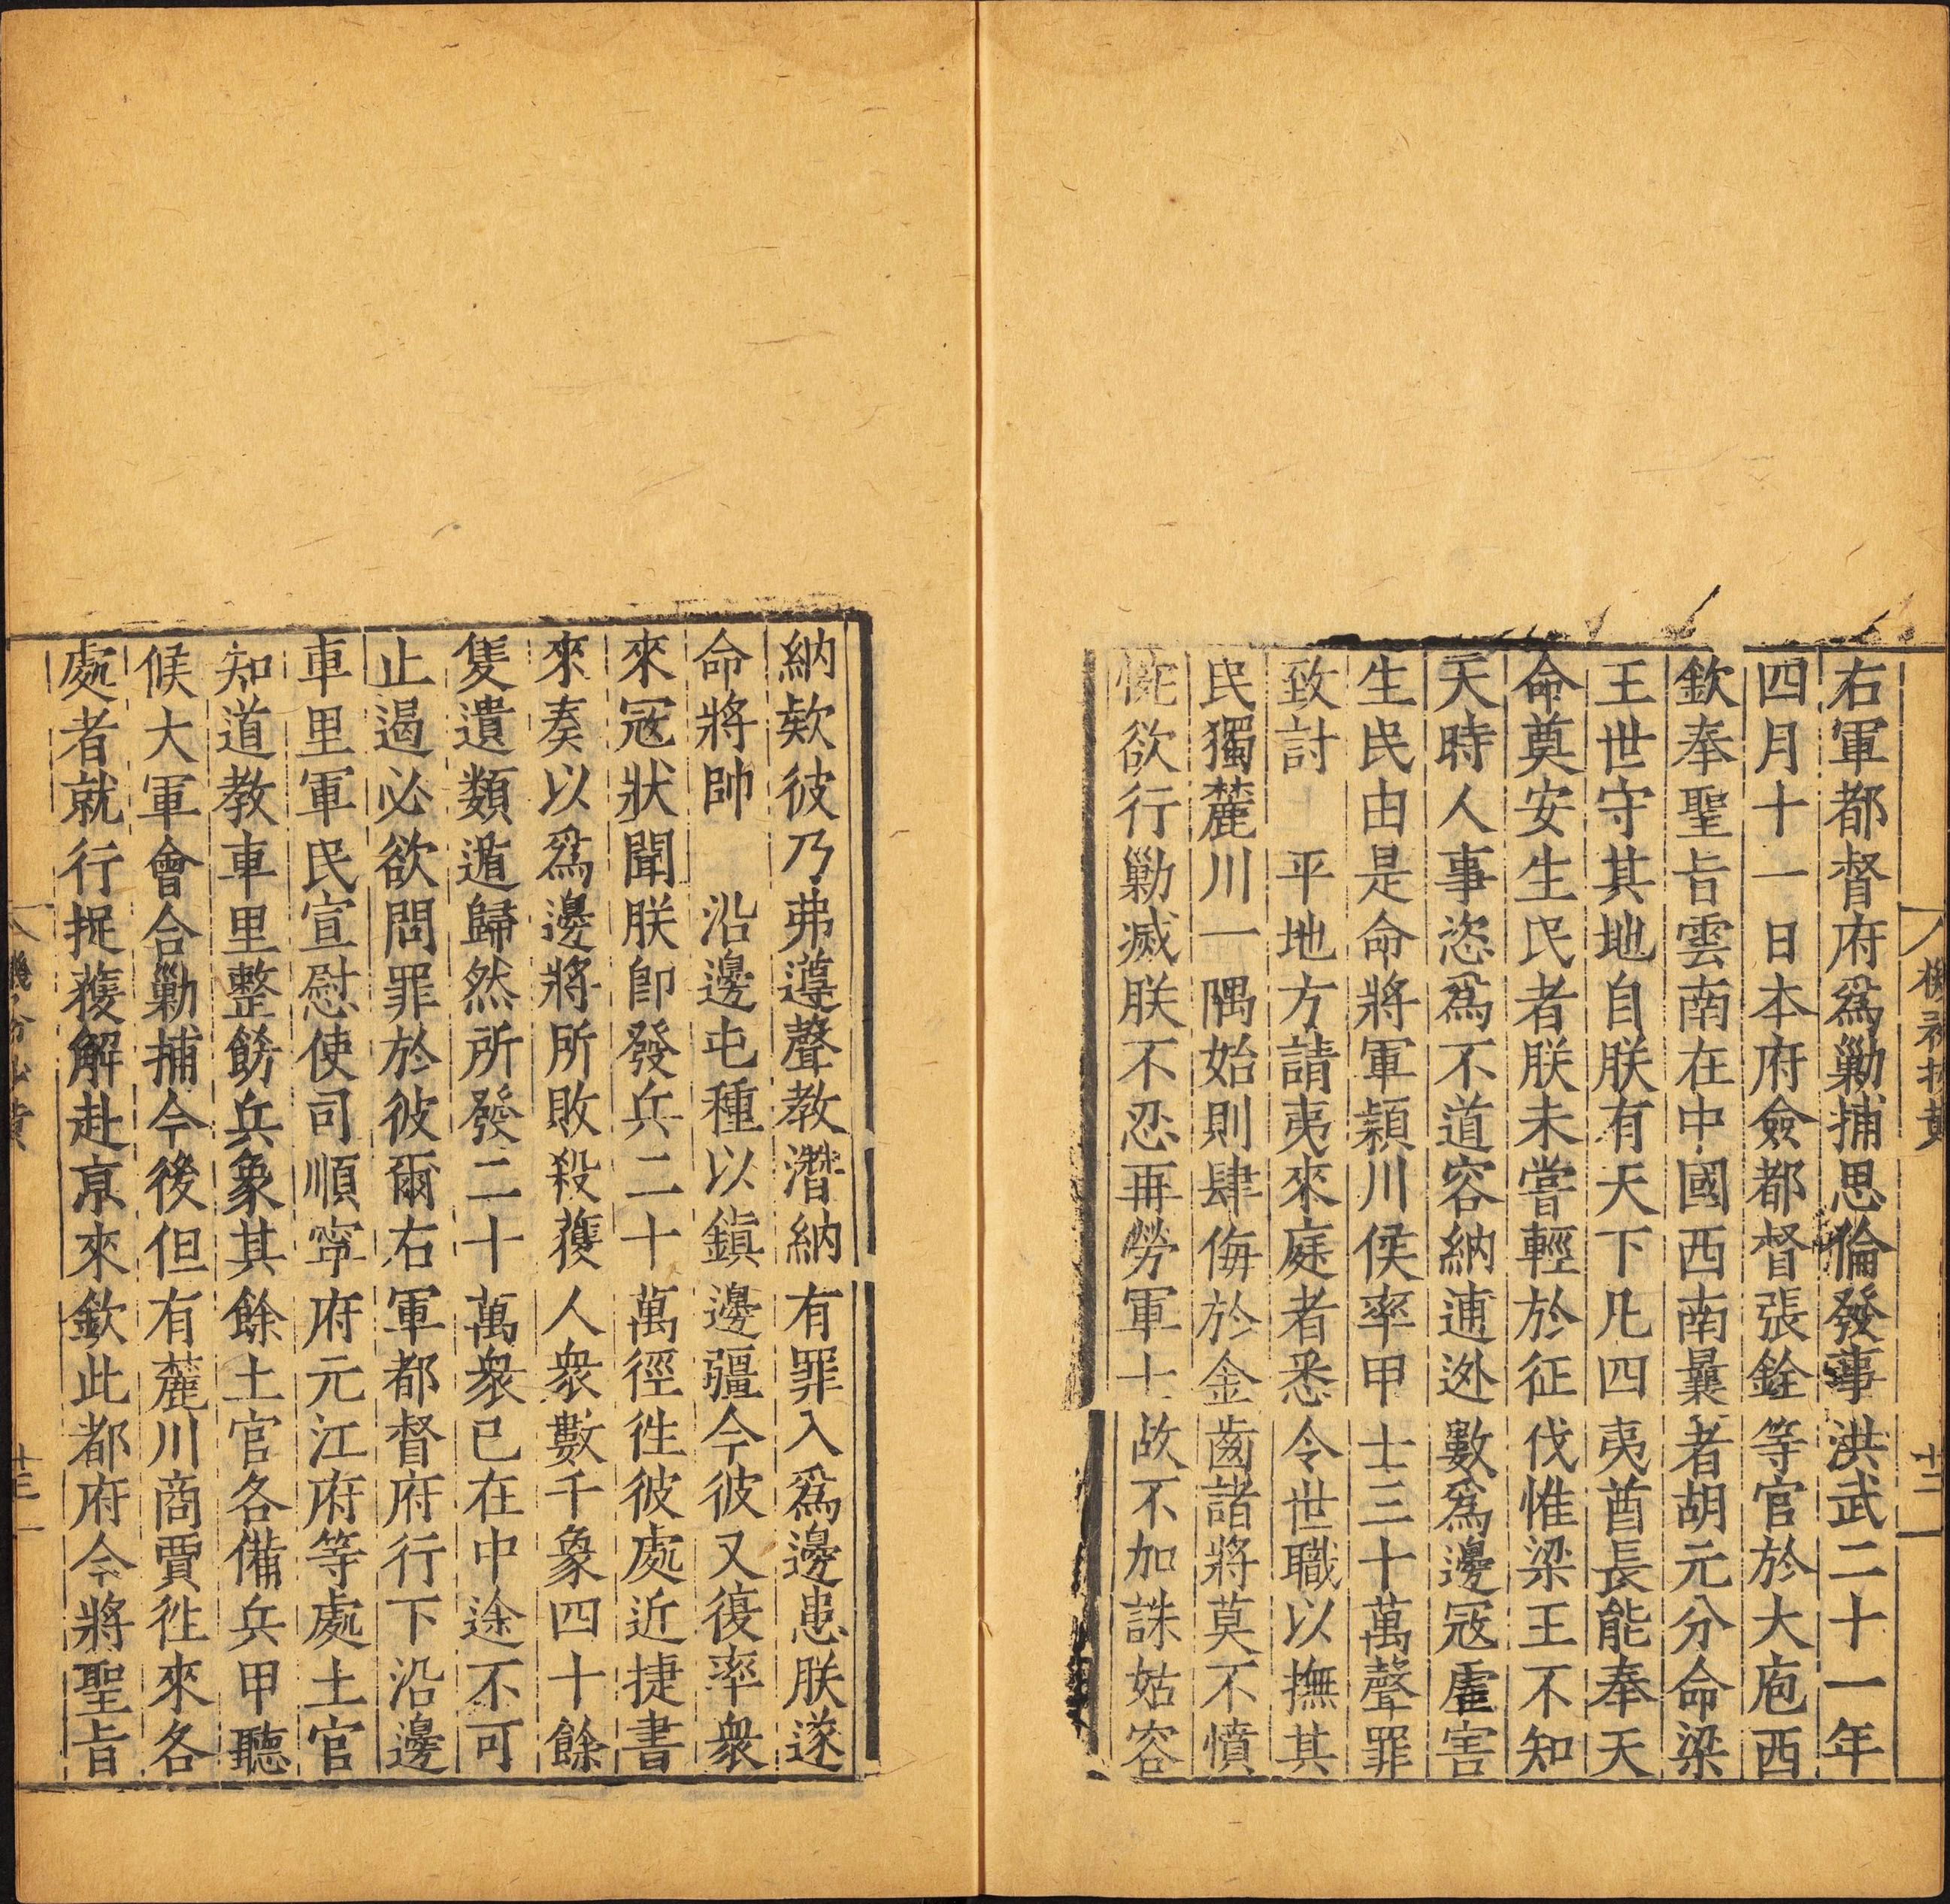 右軍都督府爲勦捕思倫發事洪武二十一年
四月十一日本府僉都督張銓等官於大庖西
欽奉聖旨雲南在中國西南曩者胡元分命梁
王世守其地自朕有天下凡四夷酋長能奉天
命奠安生民者朕未嘗輕於征伐惟梁王不知
天時人事恣爲不道容納逋逃數爲邊寇虐害
生民由是命將軍潁川侯率甲士三十萬聲罪
致討 平地方請夷來庭者悉令世職以撫其
民獨麓川一隅始則肆侮於金齒諸將莫不憤
欲行勦滅朕不忍再勞軍士故不加誅姑容
納欵彼乃弗遵聲教潛納有罪入爲邊患朕遂
命將帥 沿邊屯種以鎭邊疆今彼又復率衆
來寇狀聞朕卽發兵二十萬徑徃彼處近捷書
來奏以爲邊將所敗殺獲人衆數千象四十餘
隻遺類遁歸然所發二十萬衆已在中途不可
止遏必欲問罪於彼爾右軍都督府行下沿邊
車里軍民宣慰使司順寧府元江府等處土官
知道教車里整餝兵象其餘土官各備兵甲聽
候大軍會合勦捕今後但有麓川商賈徃來各
處者就行捉獲解赴京來欽此都府今將聖旨
十三